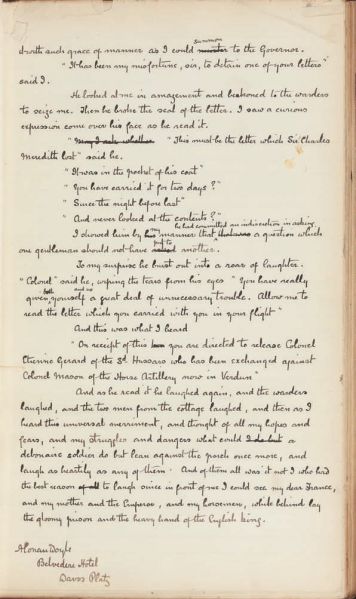 with such grace of manner as I could summon to the Governor.
"It has been my misfortune, sir, to detain one of your letters"
said I.
He looked at me in amazement and beckoned to the warders
to seize me. Then he broke the seal of the letter. I saw a curious
expression come over his face as he read it.
"May I ask whether "This must be the letter which Sir Charles
Meredith lost" said he.
"It was in the pocket of his coat"
"You have carried it for two days?"
"Since the night before last"
"And never looked at the contents?"
he had committed an indiscretion in asking
I showed him by my manner that a question which
one gentleman should not have put to another."
To my surprise he burst out into a roar of laughter.
"Colonel" said he, wiping the tears from his eyes "You have really
both and us
given yourself a great deal of unnecessary trouble. Allow me to
read the letter which you carried with you in your flight"
And this was what I heard
"On receipt of this you are directed to release Colonel
Etienne Gerard of the 3d Hussars who has been exchanged against
Colonel Mason of the Horse Artillery now in Verdun"
And as he read it he laughed again, and the warders
laughed, and the two men from the cottage laughed, and then as I
heard this universal merriment, and thought of all my hopes and
fears, and my struggles and dangers what could I do but a
debonaire soldier do but lean against the porch once more, and
laugh as heartily as any of them. And of them all was it not I who had
the best reason of all to laugh since in front of me I could see my dear France,
and my mother and the Emperor, and my horsemen, while behind lay
the gloomy prison and the heavy hand of the English King.
A Conan Doyle
Belvedere Hotel
Davos Platz